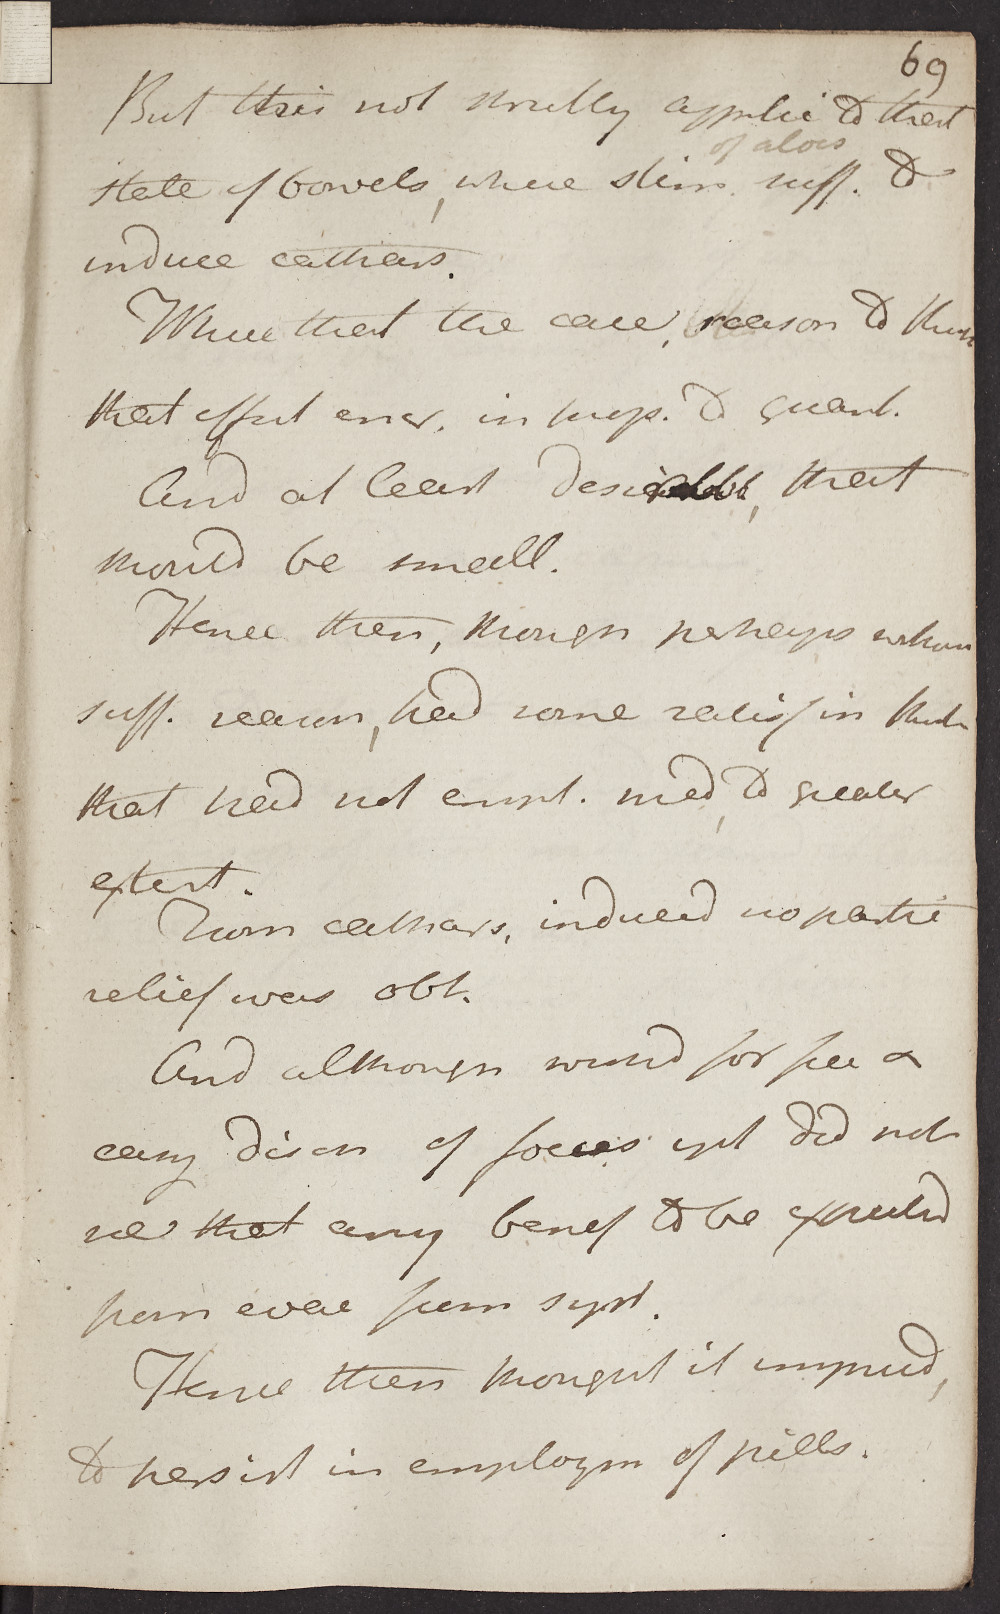 69
But this not strictly applic to that
of aloes
state of bowels, where stim. suff. to
induce cathars.
Where that the case, reason to think
that effect incr. in prop. to quant.
And at least desirabl, that
should be small.
Hence then, though perhaps withou
suff. reason, had some satisf in think
that had not empl. med, to greater
extent.
From cathars. induced no partic
relief was obt.
And although wishd for free &
easy disch of foeces yet did not
see that any benef to be expected
from evac from syst.
Hence then thought it imprud,
to persist in employm of pills.